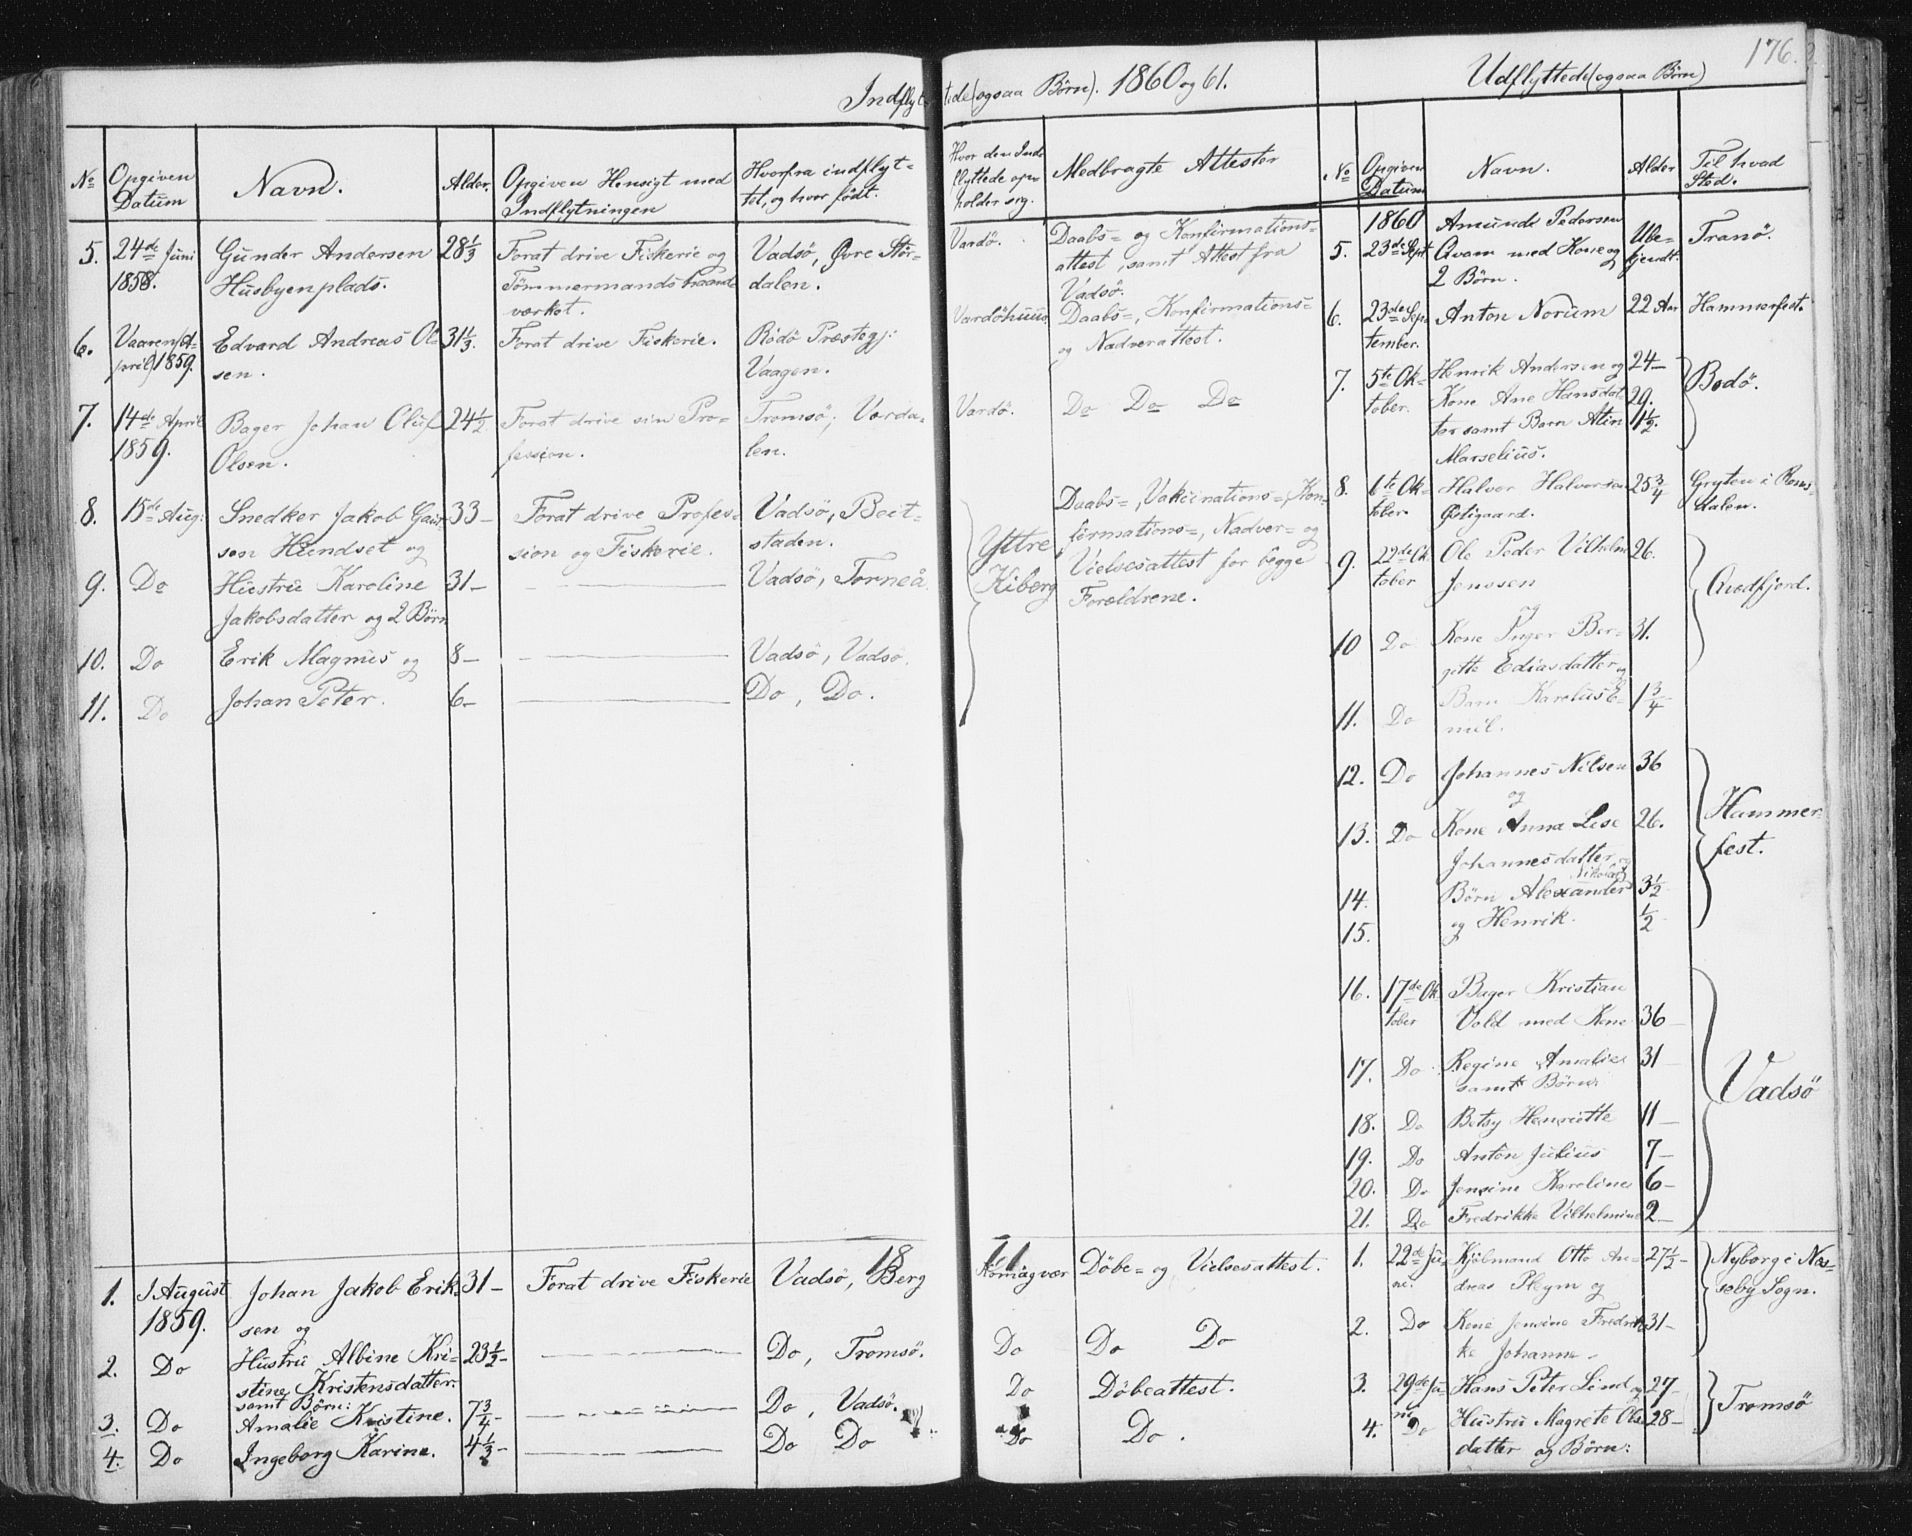 Indflyttede (ogsaa Børn). 1860 og 61.
Udflyttede (ogsaa Børn)
176.
No
Opgiven Datum
Navn.
Alder.
Opgiven Hensigt med Indflytningen
Hvorfra indflyt=
tet, og hvor født.
Hvor den Ind=
flyttede op=
holder sig.
Medbragte Attester
No
Opgiven Datum
Navn.
Alder
Til hvad Sted.
5. 24de Juni Gunder Andersen 28 1/3 Forat drive Fiskerie og Vadsö, Øvre Stör= Vardö. Daabs= og Konfirmations=
1858. Husbyenplads. Tömmermands haand= dalen. attest, samt Attest fra
værket. Vadsö.
6. Vaaren (A= Edvard Andreas Ol= 31 1/3. Forat drive Fiskerie. Rödö Præstegj: Vardöhuus Daabs=, Konfirmations=
pril) 1859. sen. Vaagen. og Nadverattest.
7. 14de April Bager Johan Oluf 24 1/2 Forat drive sin Pro= Tromsö, Værda= Vardö. Do Do Do
1859. Olsen. fession. len.
8. 15de Aug: Snedker Jakob 33 – Forat drive Profes= Vadsö, Beit= Yttre Daabs=, Vakcinations=, Kon=
sen Hundset og sion og Fiskerie. staden. Kiberg firmations=, Nadver= og
9. Do Hustru Karoline 31 – Vadsö, Torneå. Vielsesattest for begge
Jakobsdatter og 2 Börn Forældrene.
10. Do Erik Magnus og 8 – Vadsö, Vadsö.
11. Do Johan Peter. 6 – Do, Do.
18 61
1. 1 August Johan Jakob Erik= 31 – Forat drive Fiskerie Vadsö, Berg Komagvær Döbe= og Vielsesattest.
1859. sen og
2. Do Hustru Albine Kri= 23 1/2 – Do, Tromsö. Do Do Do
stine Kristensdatter.
samt Börn:
3. Do Amalie Kristine. 7 3/4 – Do, Vadsö. Do Döbeattest.
4. Do Ingeborg Karine. 4 1/2 – Do Do Do Do.
1860 Amund Pedersen
5. 23de Sept Qvam med Kone og Ube= Tranö.
2 Börn. kjendt.
6. 23de Sep= Anton Norum 22 Aar Hammerfest.
tember.
7. 5te Ok= Henrik Andersen og 24 – Bodö.
tober. Kone Ane Hansdat= 29.
ter samt Barn 1 1/2.
Marselius.
8. 6te Ok= Halvor Halvorsen 25 3/4 Gryten i Roms=
tober. Östigaard. dalen.
9. 22de Ok= Ole Peder Vilhelm 26. Qvædfjord.
tober Jenssen
og
10 Do Kone Inger Ber= 31.
gitte Ediasdatter og
11. Do Barn Karelius E= 1 3/4
mil.
12. Do Johannes Nilsen 36 Hammer=
og fest.
13. Do Kone Anna Lise 26.
Johannesdatter og
Nikolai
14. Börn Alexander 3 1/2
15. og Henrik. 1/2
16. 17de Ok= Bager Kristian
tober Vold med Kone 36 – Vadsö
17. Do Regine Amalie 31 –
samt Börn:
18. Do Betsy Henriette 11 –
19. Do Anton Julius 7 –
20. Do Jensine Karoline 6 –
21. Do Fredrikke Vilhelmine 2 –
1. 22de Ju= Kjöbmand Otto An= 27 1/2 – Nyborg i Næs=
ni. dreas Pleym og seby Sogn.
2. Do Kone Jensine Fredrik= 31 –
ke Johanne.
3. 29de Ju= Hans Peter Lind og 27 – Tromsö
ni
4. Do Hustru Magrete Ols= 28 –
datter og Börn: